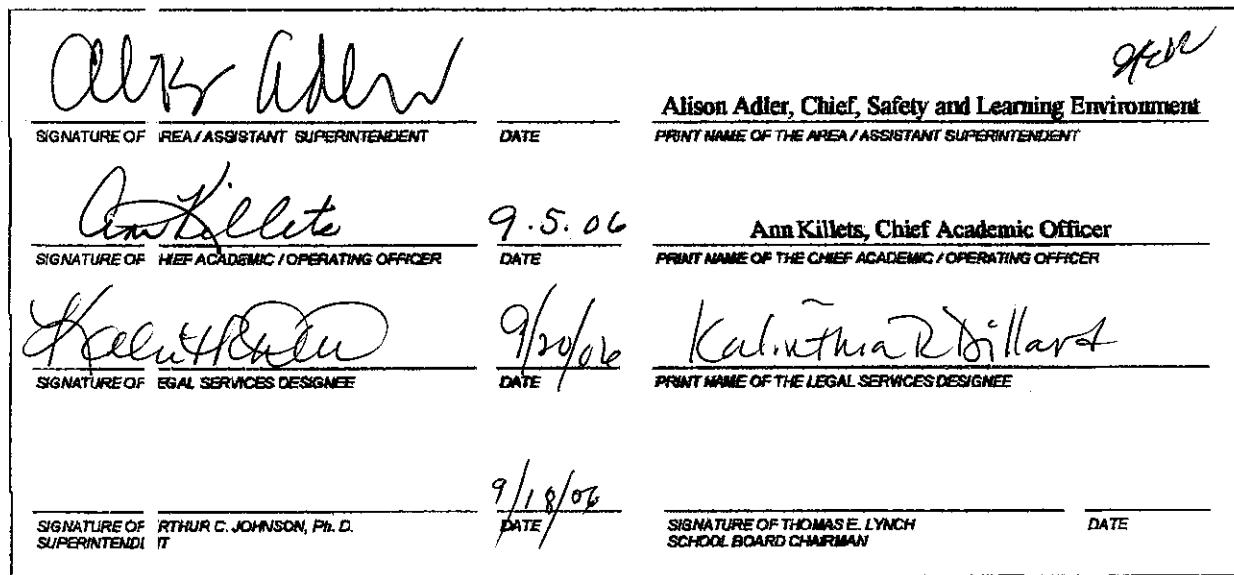 Alison Adler
Alison Adler, Chief, Safety and Learning Environment
SIGNATURE OF REA / ASSISTANT SUPERINTENDENT DATE PRINT NAME OF THE AREA / ASSISTANT SUPERINTENDENT
Ann Killets 9.5.06 Ann Killets, Chief Academic Officer
SIGNATURE OF HIEF ACADEMIC / OPERATING OFFICER DATE PRINT NAME OF THE CHIEF ACADEMIC / OPERATING OFFICER
9/20/06 Kalinthia R Dillard
SIGNATURE OF EGAL SERVICES DESIGNEE DATE PRINT NAME OF THE LEGAL SERVICES DESIGNEE
9/18/06
SIGNATURE OF RTHUR C. JOHNSON, Ph. D. DATE SIGNATURE OF THOMAS E. LYNCH DATE
SUPERINTEND T SCHOOL BOARD CHAIRMAN